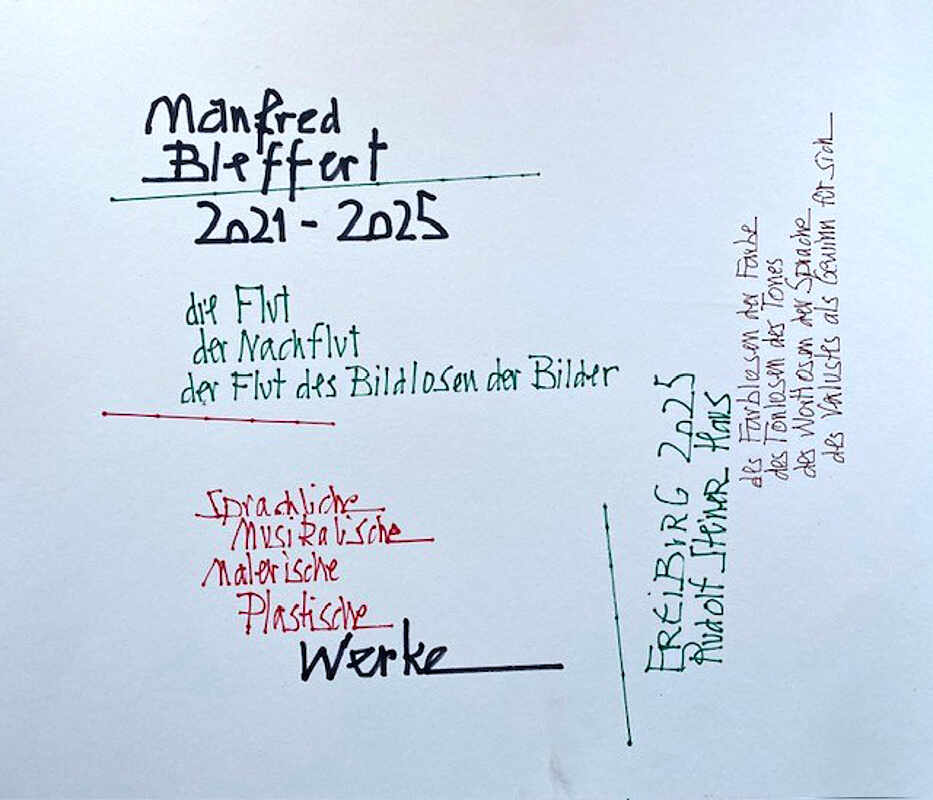 Manfred
Bleffert
2021 - 2025
die Flut
der Nachflut
der Flut des Bildlosen der Bilder
Sprachliche
Musikalische
Malerische
Plastische
Werke
FREiBURG 2025
Rudolf Steiner Haus
des Farblosen der Farbe
des Tonlosen des Tones
des Wortlosen der Sprache
des Verlustes als Gewinn für sich